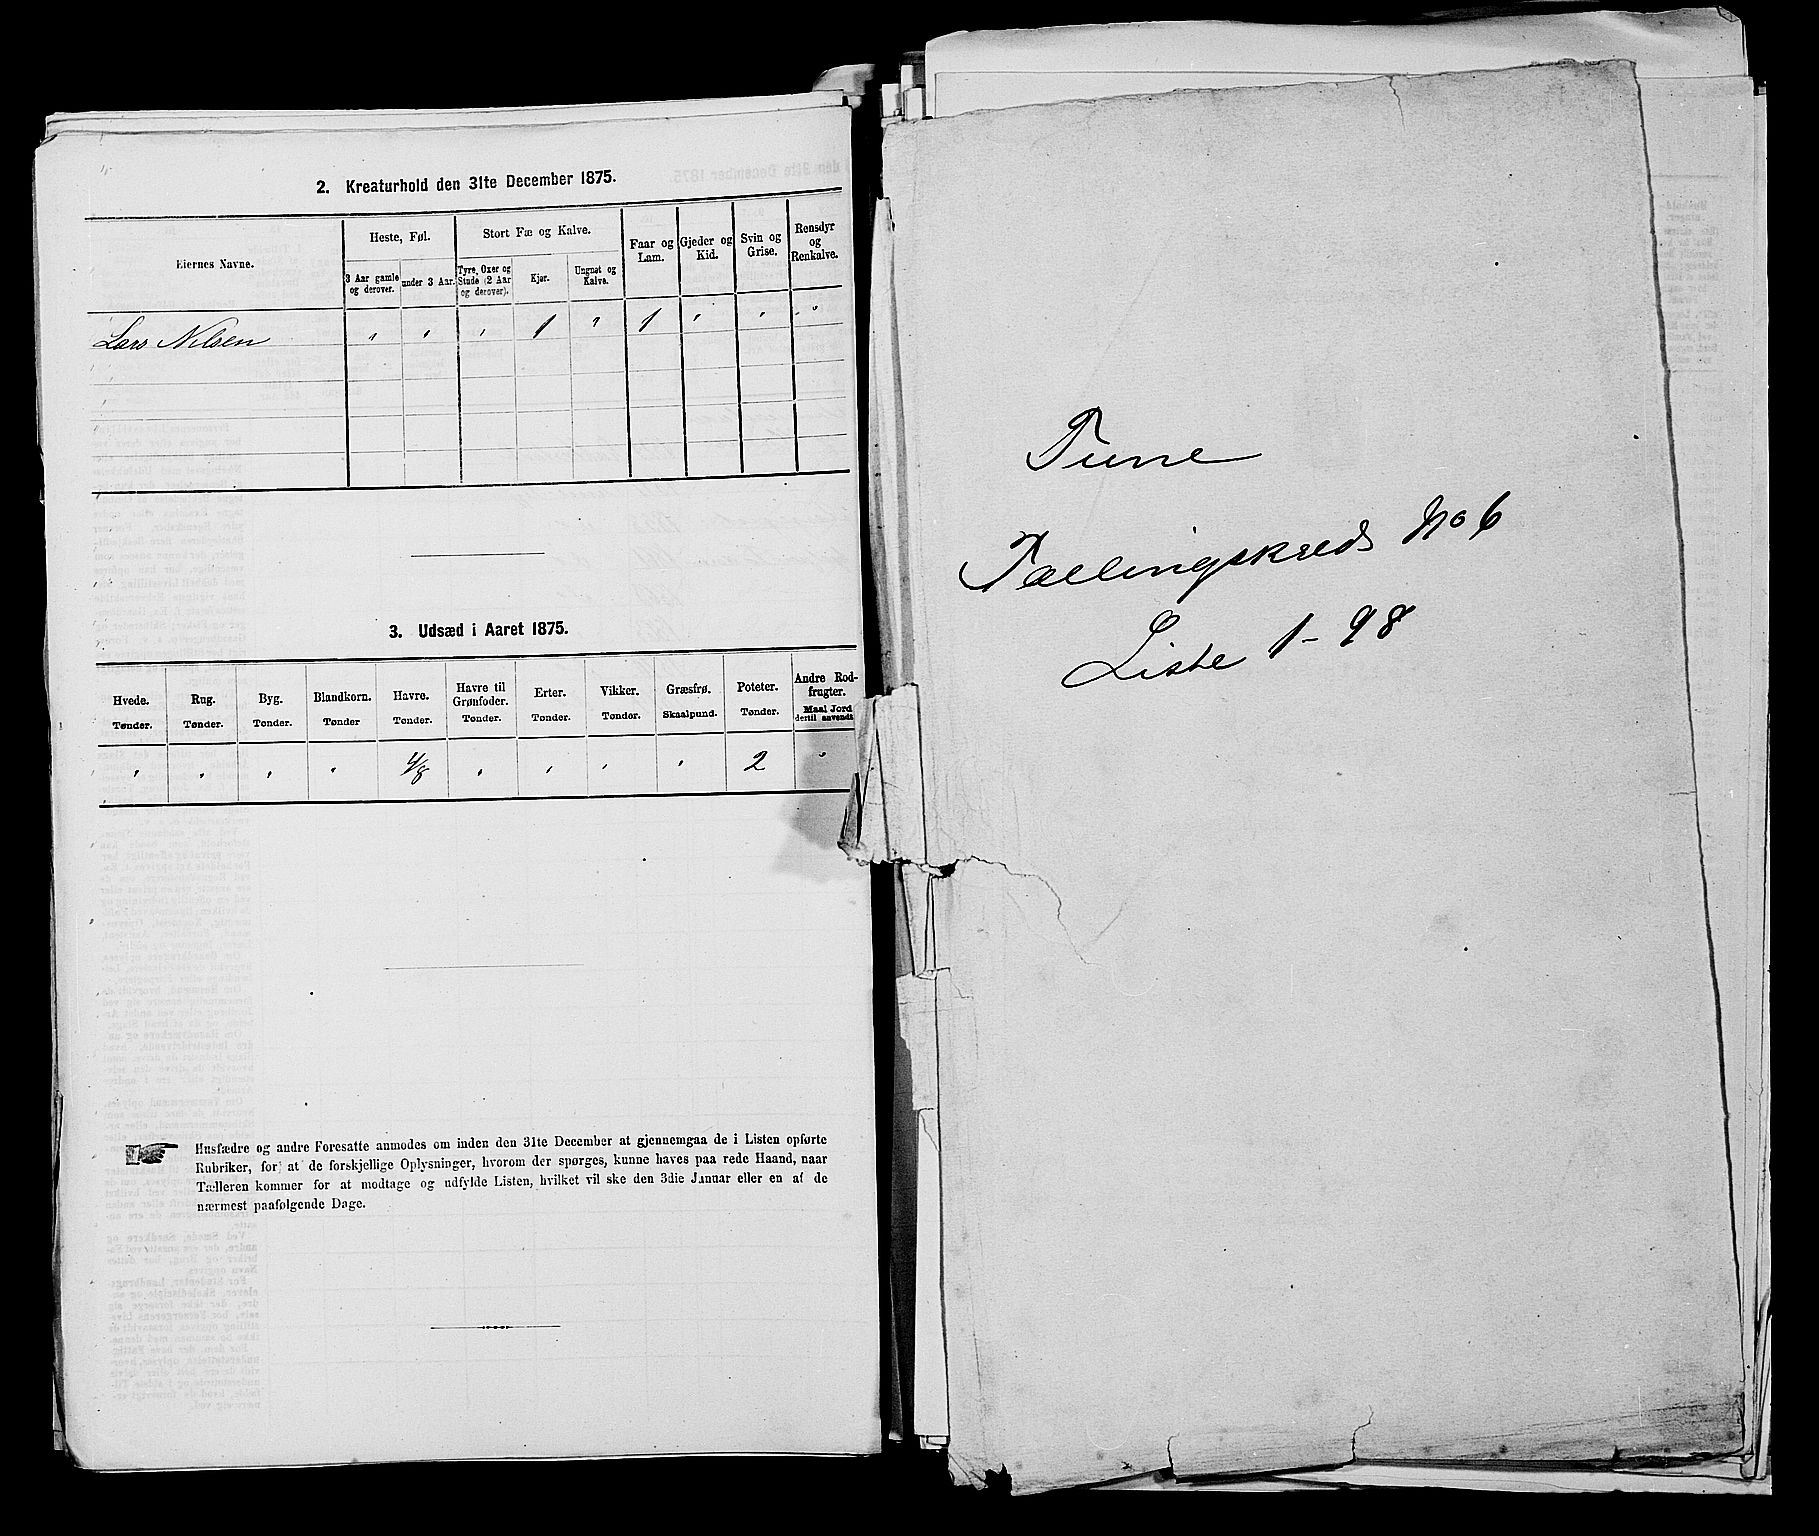 2. Kreaturhold den 31te December 1875.
Eiernes Navne.
Heste, Føl.
Stort Fæ og Kalve.
Faar og Lam.
Gjeder og Kid.
Svin og Grise.
Rensdyr og Renkalve.
3 Aar gamle og derover.
under 3 Aar.
Tyre, Oxer og Stude (2 Aar og derover).
Kjør.
Ungnøt og Kalve.
Lars Nilsen " " " 1 " 1 " " "
3. Udsæd i Aaret 1875.
Hvede. Rug. Byg. Blandkorn. Havre. Havre til Grønfoder. Erter. Vikker. Græsfrø. Poteter. Andre Rodfrugter.
Tønder. Tønder. Tønder. Tønder Tønder. Tønder. Tønder. Tønder. Skaalpund. Tønder. Maal Jord dertil anvendt
" " " " 4/8 " " " " 2 "
Husfædre og andre Foresatte anmodes om inden den 31te December at gjennemgaa de i Listen opførte
Rubriker, for at de forskjellige Oplysninger, hvorom der spørges, kunne haves paa rede Haand, naar
Tælleren kommer for at modtage og udfylde Listen, hvilket vil ske den 3die Januar eller en af de
nærmest paafølgende Dage.
Tune
Tællingskreds No 6
Liste 1-98